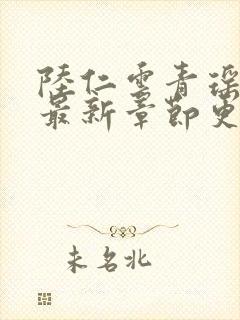 陆仁云青瑶
最新章节更
未名北